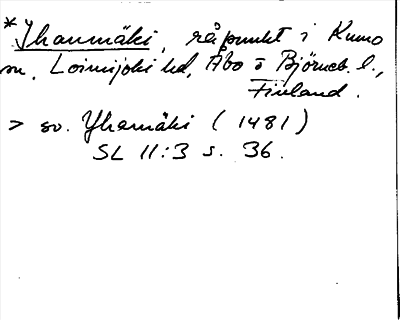 *Yhanmäki, råpunkt i Kumo
sn, Loimijoki hd, Åbo o Björneb. l.,
Finland.
> sv. Yhamäki (1481)
SL 11:3 s. 36.